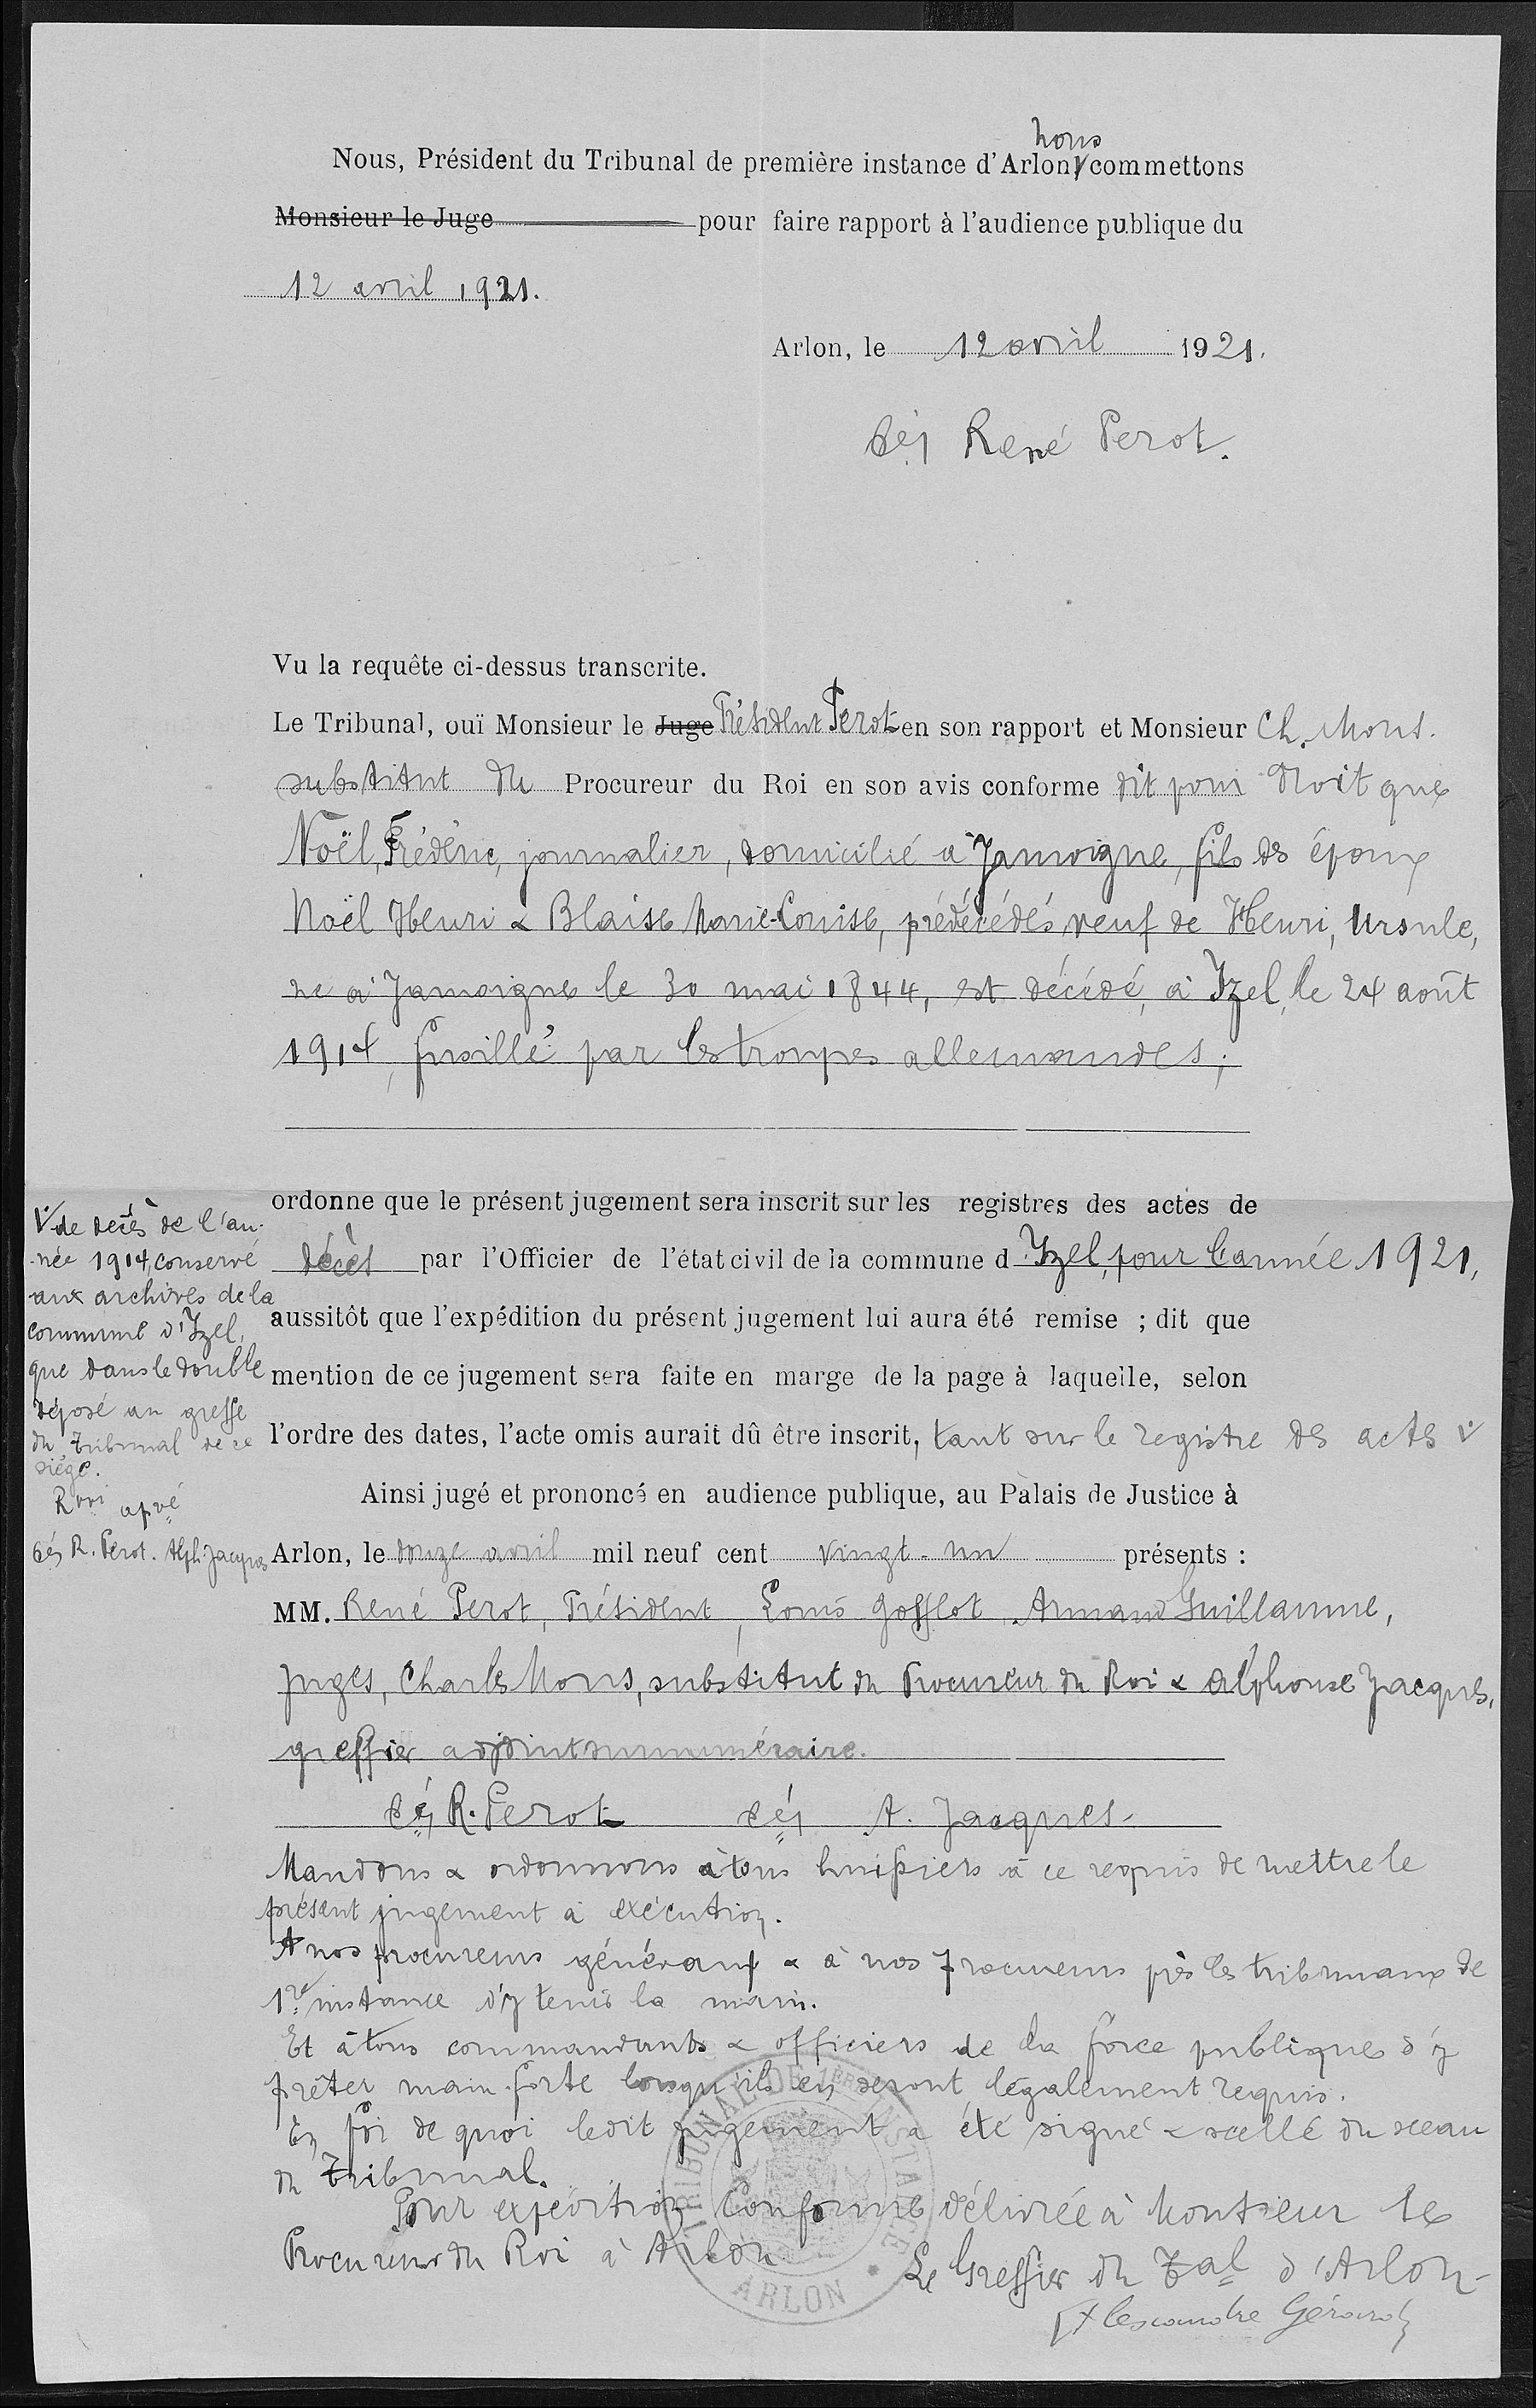 nous
Nous, Président du Tribunal de première instance d'Arlon, commettons
Monsieur le Juge pour faire rapport à l'audience publique du
12 avril 1921.
Arlon, le 12 avril 1921.
(sé) René Perot.
Vu la requête ci-dessus transcrite.
Le Tribunal, ouï Monsieur le Juge Président Perot en son rapport et Monsieur Ch. Mons.
substitut du Procureur du Roi en son avis conforme dit pour droit que
Noël, Frédéric, journalier, domicilié à Jamoigne, fils des époux
Noël Henri & Blaise Marie-Louise, prédécédés, veuf de Henri, Ursule,
né à Jamoigne le 30 mai 1844, est décédé, à Izel, le 24 août
1914, fusillé par les troupes allemandes;
ordonne que le présent jugement sera inscrit sur les registres des actes de
décès par l'Officier de l'état civil de la commune d'Izel, pour l'année 1921,
aussitôt que l'expédition du présent jugement lui aura été remise ; dit que
mention de ce jugement sera faite en marge de la page à laquelle, selon
l'ordre des dates, l'acte omis aurait dû être inscrit, tant sur le registre des actes V
V de décès de l'an-
-née 1914, conservé
aux archives de la
commune d'Izel,
que dans le double
déposé au greffe
du Tribunal de ce
siège.
Rvoi apvé
(sé) R. Perot. Alph. Jacques
Ainsi jugé et prononcé en audience publique, au Palais de Justice à
Arlon, le douze avril mil neuf cent vingt-un présents :
MM. René Perot, Président, Louis Gofflot, Armand Guillaume,
juges, Charles Mons, substitut du Procureur du Roi & Alphonse Jacques,
greffier adjoint surnuméraire.
(sé) R. Perot (sé) A. Jacques
Mandons & ordonnons à tous huissiers à ce requis de mettre le
présent jugement à exécution.
A nos procureurs généraux & à nos procureurs près les tribunaux de
1re instance d'y tenir la main.
Et à tous commandants & officiers de la force publique d'y
prêter main-forte lorsqu'ils en seront légalement requis.
En foi de quoi ledit jugement a été signé & scellé du sceau
du Tribunal.
Pour expédition conforme délivrée à Monsieur le
Procureur du Roi à Arlon
Le Greffier du Tal d'Arlon
Alexandre Gérard
TRIBUNAL DE 1ERE INSTANCE
ARLON